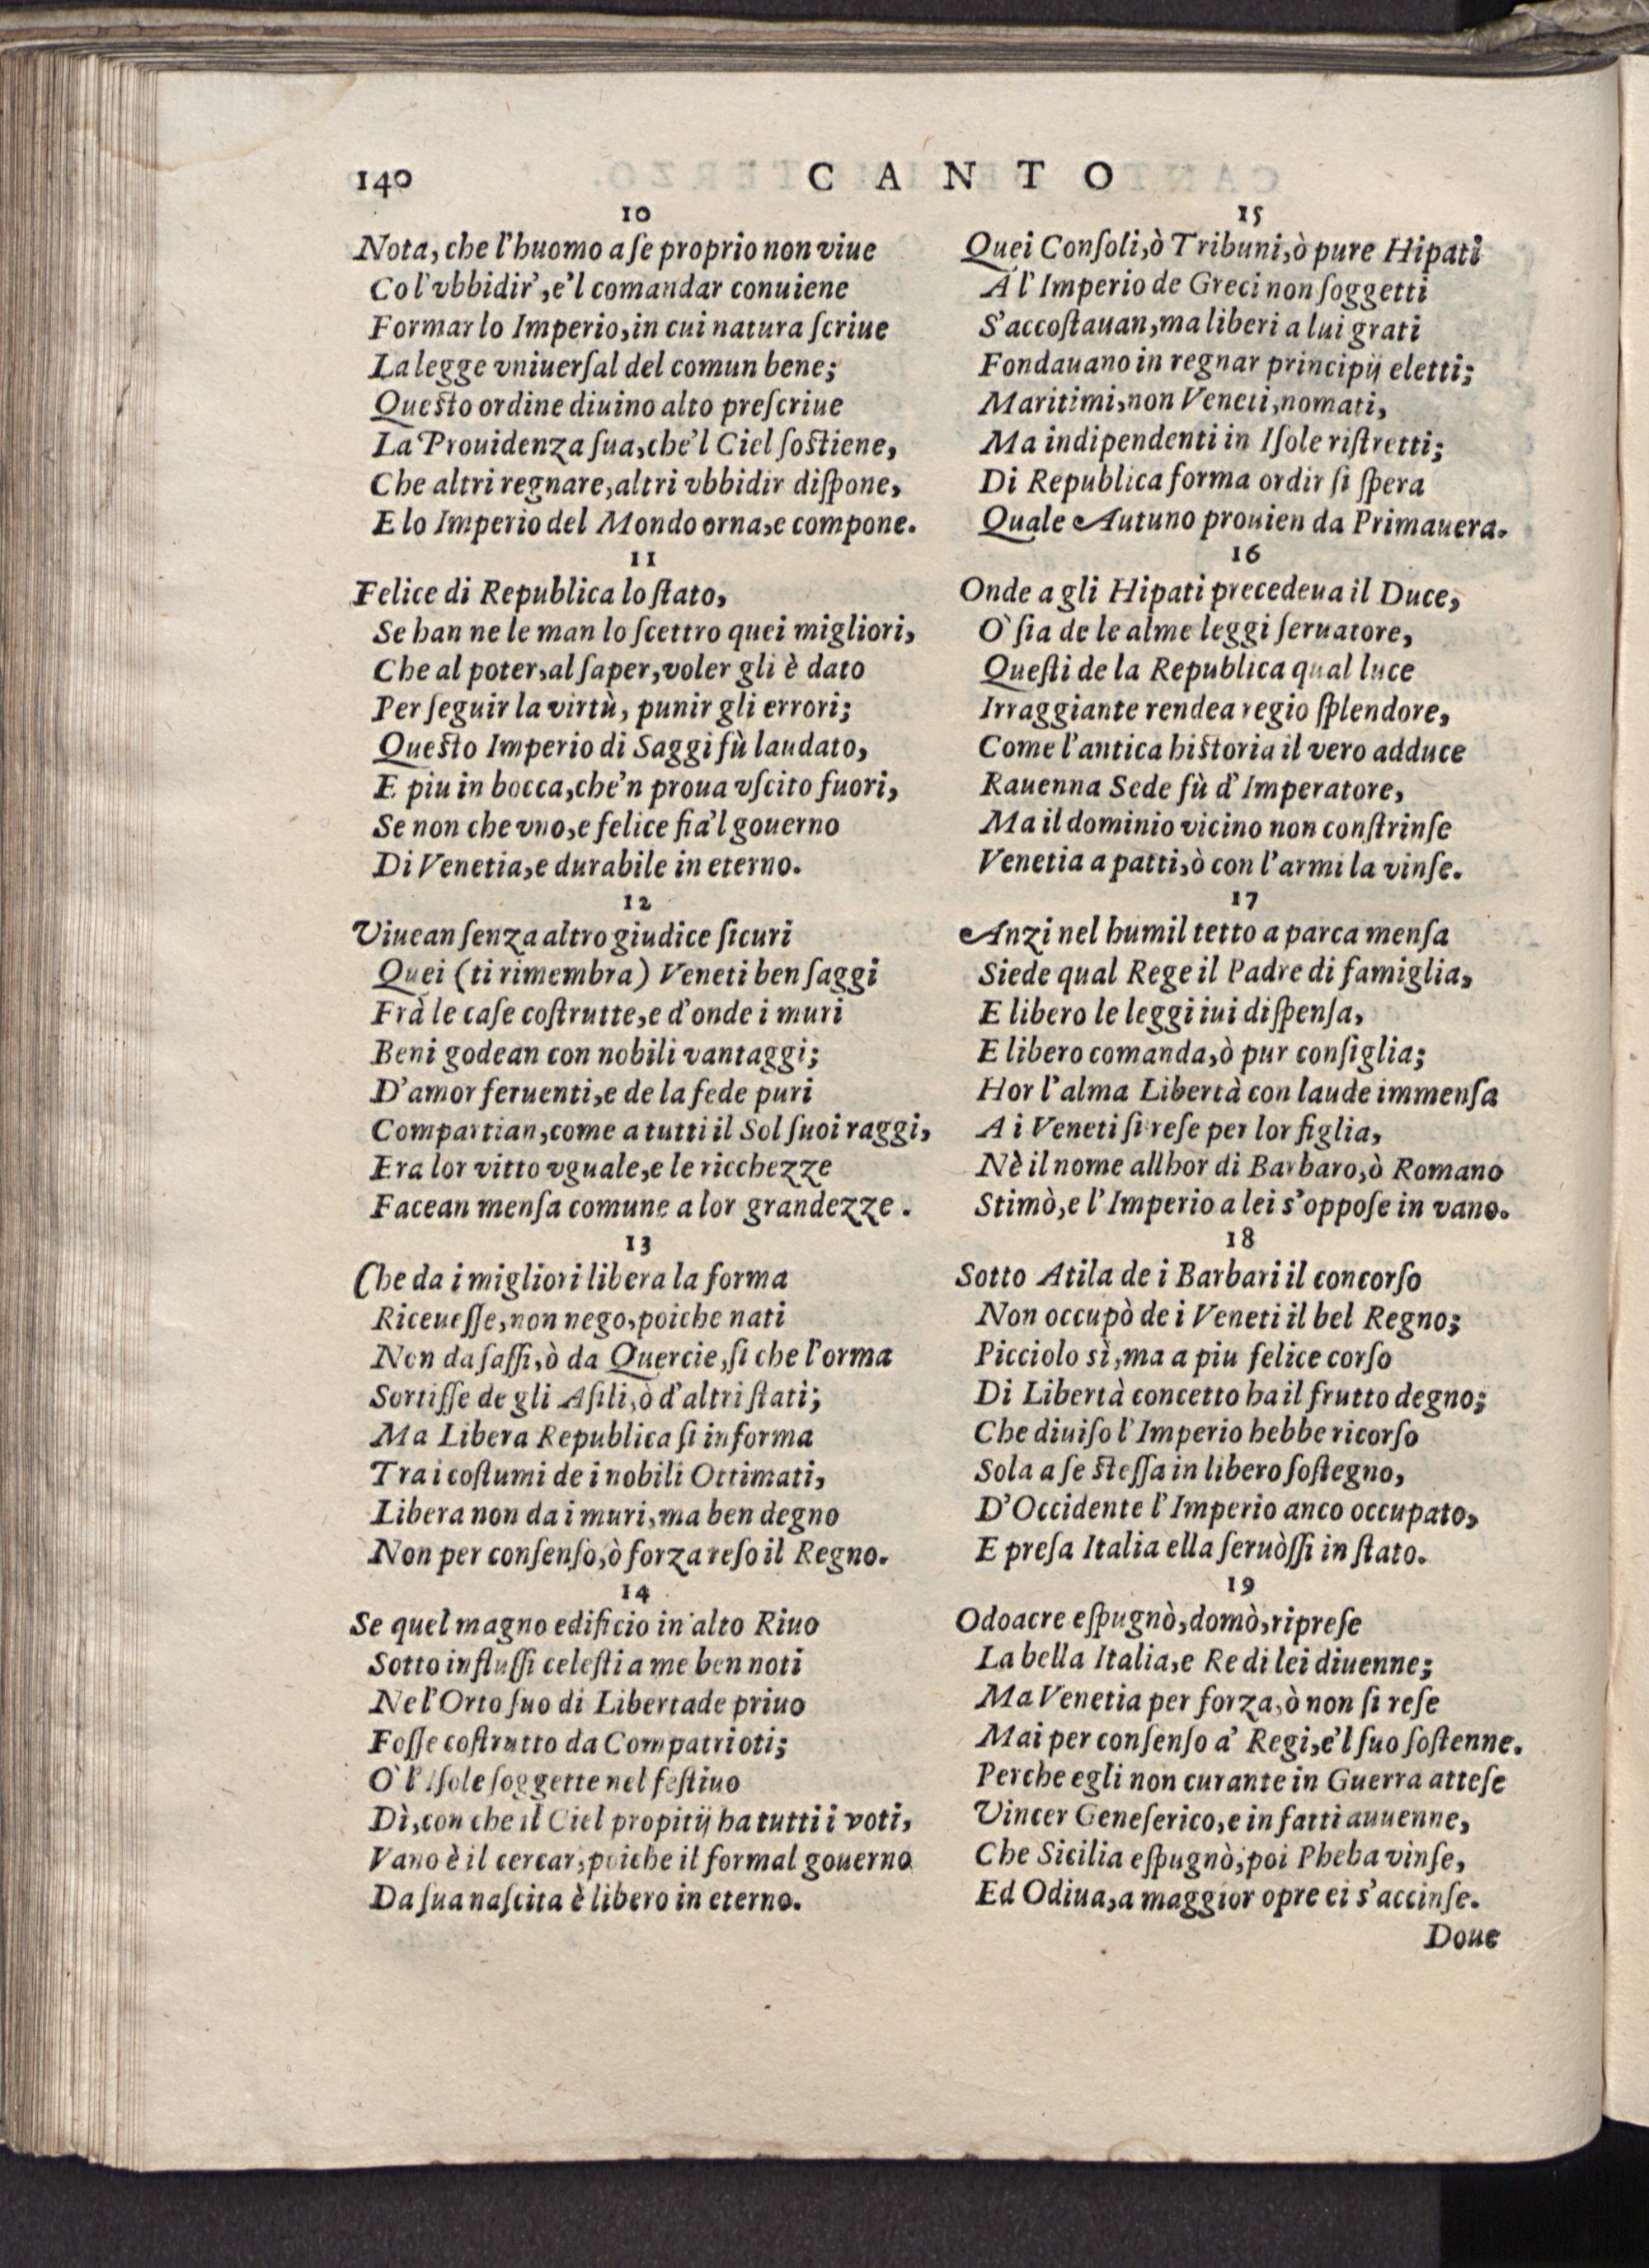 140 CANTO
10
Nota, che l'huomo a ſe proprio non viue
Co l'vbbidir', e'l comandar conuiene
Formar lo Imperio, in cui natura ſcriue
La legge vniuerſal del comun bene;
Queſto ordine diuino alto preſcriue
La Prouidenza ſua, che'l Ciel ſoſtiene,
Che altri regnare, altri vbbidir diſpone,
E lo Imperio del Mondo orna, e compone.
11
Felice di Republica lo ſtato,
Se han ne le man lo ſcettro quei migliori,
Che al poter, al ſaper, voler gli è dato
Per ſeguir la virtù, punir gli errori;
Queſto Imperio di Saggi fù laudato,
E piu in bocca, che'n proua vſcito fuori,
Se non che vno, e felice fia'l gouerno
Di Venetia, e durabile in eterno.
12
Viuean ſenza altro giudice ſicuri
Quei (ti rimembra) Veneti ben ſaggi
Frà le caſe coſtrutte, e d'onde i muri
Beni godean con nobili vantaggi;
D'amor feruenti, e de la fede puri
Compartian, come a tutti il Sol ſuoi raggi,
Era lor vitto vguale, e le ricchezze
Facean menſa comune a lor grandezze.
13
Che da i migliori libera la forma
Riceueſſe, non nego, poiche nati
Non da ſaſſi, ò da Quercie, ſi che l'orma
Sortiſſe de gli Aſili, ò d'altri ſtati;
Ma Libera Republica ſi informa
Tra i coſtumi de i nobili Ottimati,
Libera non da i muri, ma ben degno
Non per conſenſo, ò forza reſo il Regno.
14
Se quel magno edificio in alto Riuo
Sotto influſſi celeſti a me ben noti
Ne l'Orto ſuo di Libertade priuo
Foſſe coſtrutto da Compatrioti;
O' l'Iſole ſoggette nel feſtiuo
Dì, con che il Ciel propitij ha tutti i voti,
Vano è il cercar, poiche il formal gouerno
Da ſua naſcita è libero in eterno.
15
Quei Conſoli, ò Tribuni, ò pure Hipati
A l'Imperio de Greci non ſoggetti
S'accoſtauan, ma liberi a lui grati
Fondauano in regnar principij eletti;
Maritimi, non Veneti, nomati,
Ma indipendenti in Iſole riſtretti;
Di Republica forma ordir ſi ſpera
Quale Autuno prouien da Primauera.
16
Onde a gli Hipati precedeua il Duce,
O' ſia de le alme leggi ſeruatore,
Queſti de la Republica qual luce
Irraggiante rendea regio ſplendore,
Come l'antica hiſtoria il vero adduce
Rauenna Sede fù d'Imperatore,
Ma il dominio vicino non conſtrinſe
Venetia a patti, ò con l'armi la vinſe.
17
Anzi nel humil tetto a parca menſa
Siede qual Rege il Padre di famiglia,
E libero le leggi iui diſpenſa,
E libero comanda, ò pur conſiglia;
Hor l'alma Libertà con laude immenſa
A i Veneti ſi reſe per lor figlia,
Nè il nome allhor di Barbaro, ò Romano
Stimò, e l'Imperio a lei s'oppoſe in vano.
18
Sotto Atila de i Barbari il concorſo
Non occupò de i Veneti il bel Regno;
Picciolo sì, ma a piu felice corſo
Di Libertà concetto ha il frutto degno;
Che diuiſo l'Imperio hebbe ricorſo
Sola a ſe ſteſſa in libero ſoſtegno,
D'Occidente l'Imperio anco occupato,
E preſa Italia ella ſeruòſſi in ſtato.
19
Odoacre eſpugnò, domò, ripreſe
La bella Italia, e Re di lei diuenne;
Ma Venetia per forza, ò non ſi reſe
Mai per conſenſo a' Regi, e'l ſuo ſoſtenne.
Perche egli non curante in Guerra atteſe
Vincer Geneſerico, e in fatti auuenne,
Che Sicilia eſpugnò, poi Pheba vinſe,
Ed Odiua, a maggior opre ei s'accinſe.
Doue